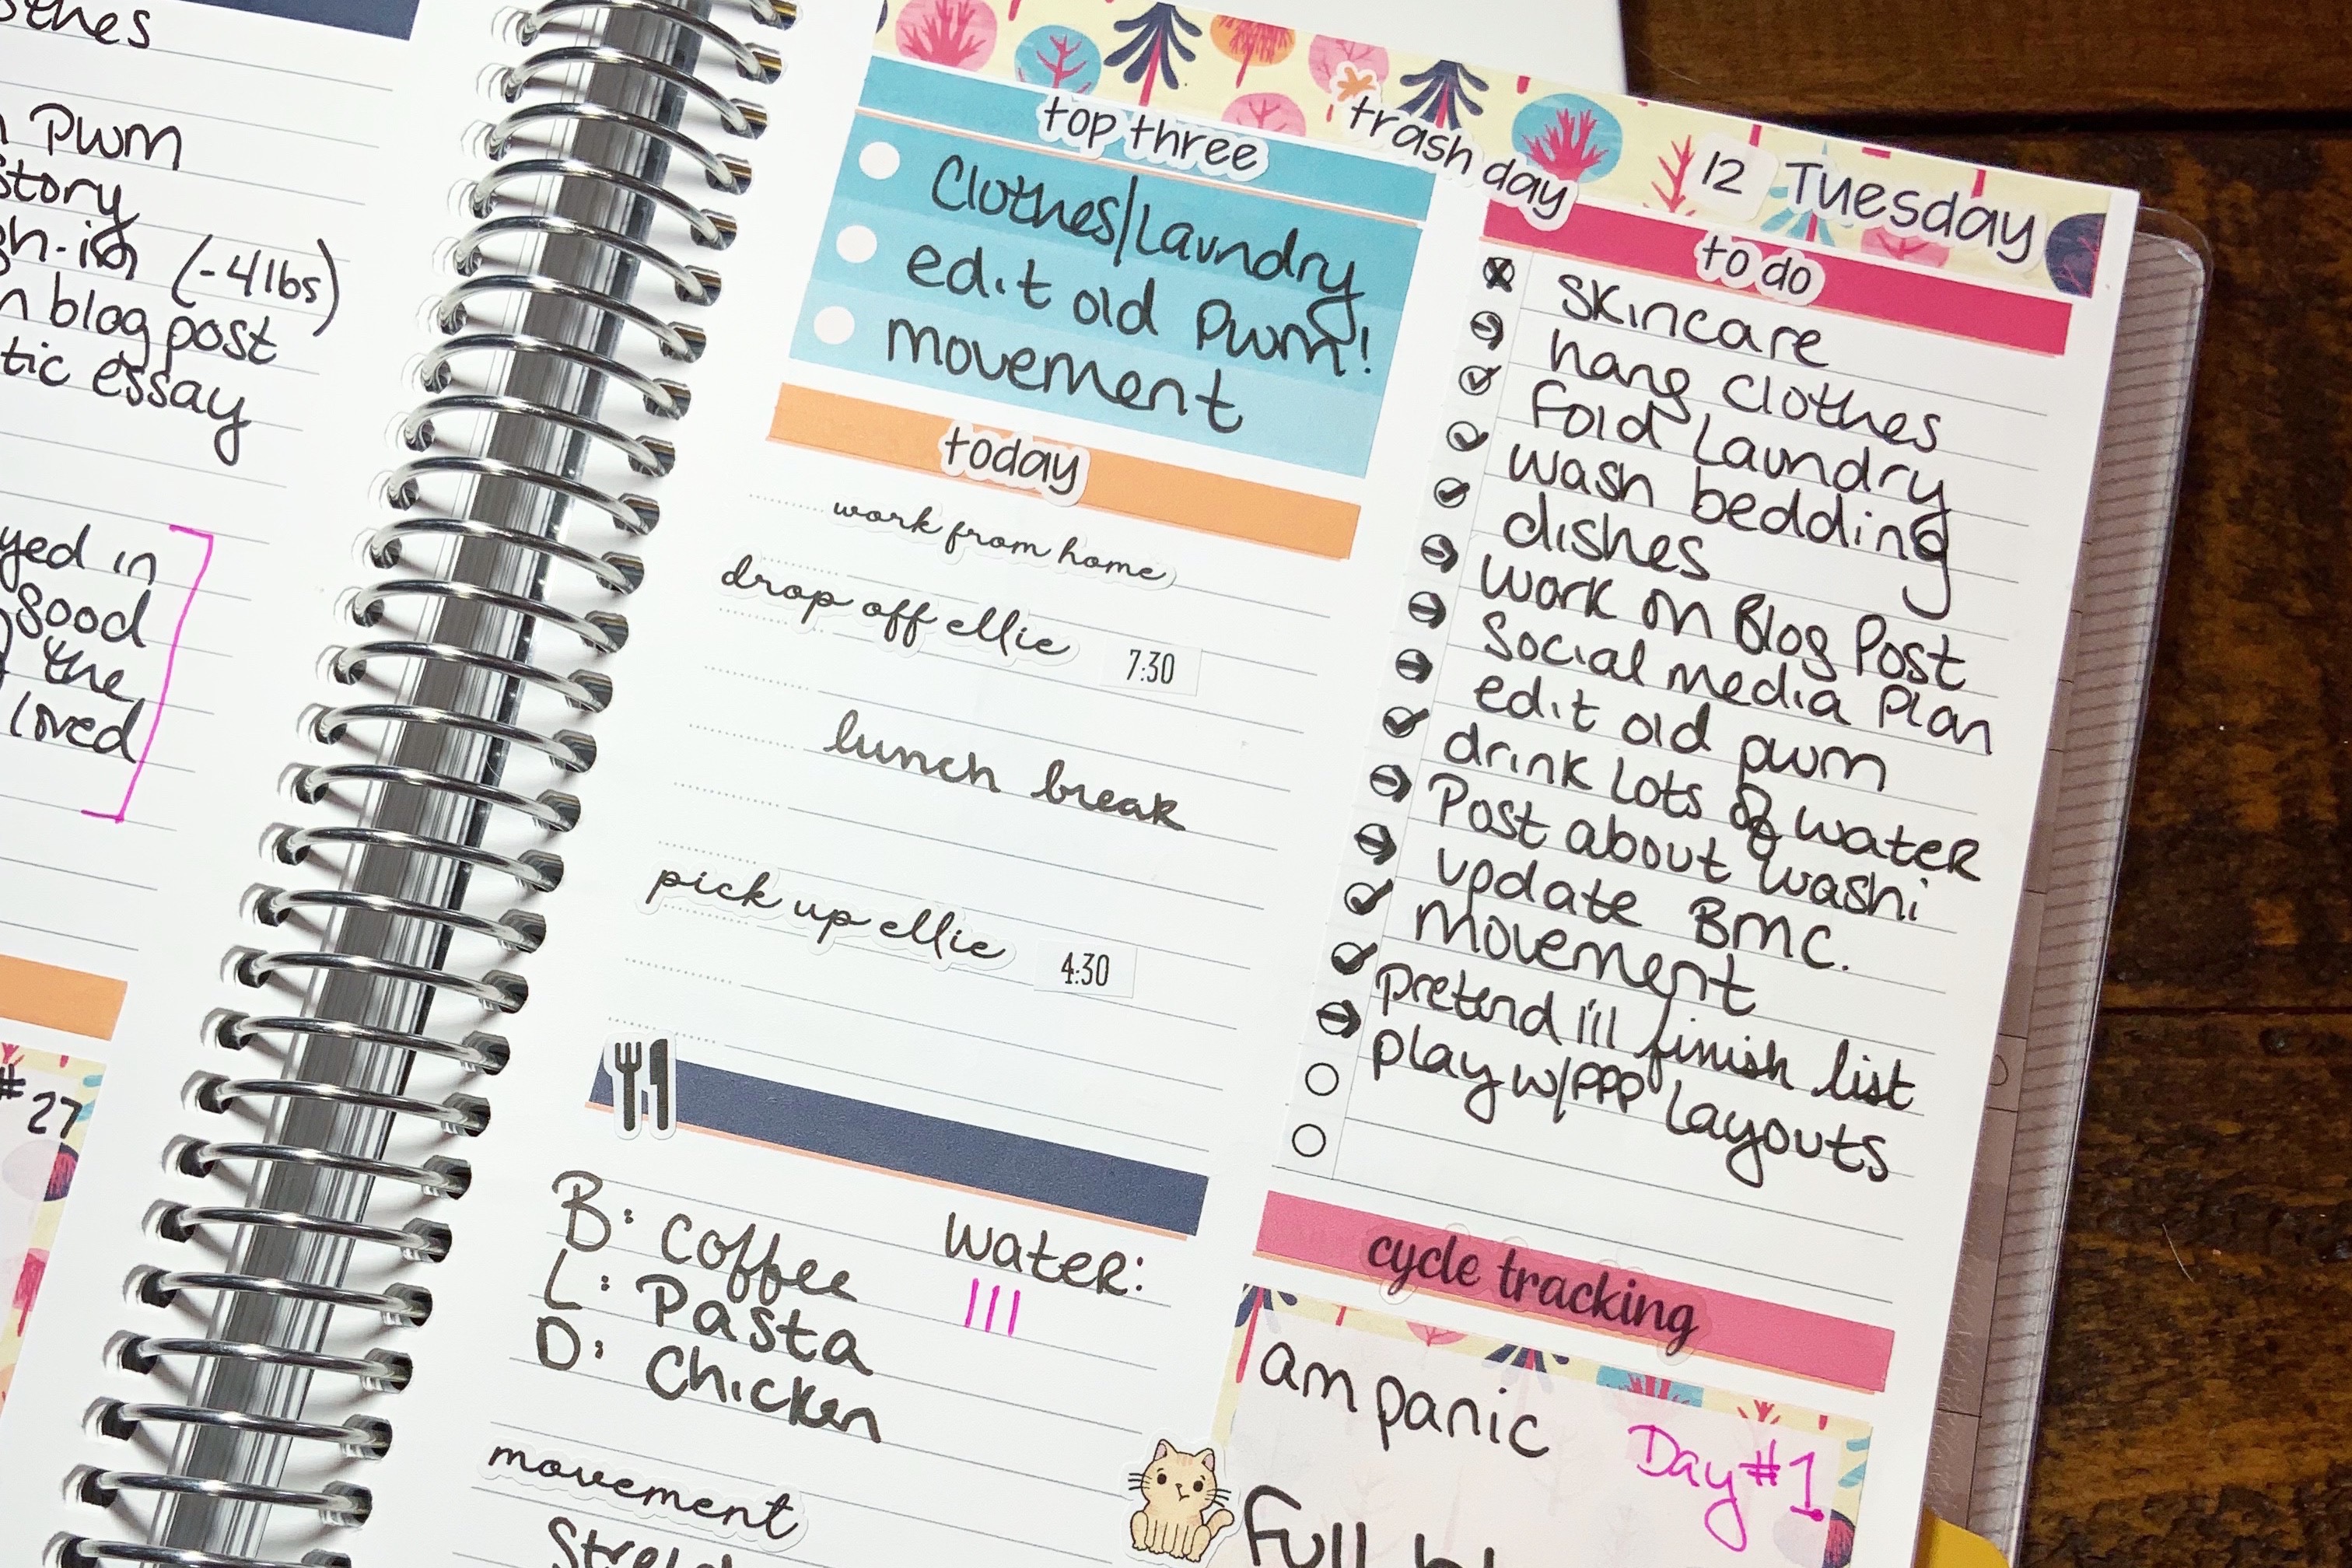 othes
PWM
story
(-4lbs)
blog post
tic essay
yed in
good
the
loved
#27
top three
Clothes/Laundry
edit old PWM!
movement
today
work from home
drop off ellie 7:30
lunch break
pick up ellie 4:30
B: Coffee
L: Pasta
D: Chicken
Water:
III
movement
trash day
12 Tuesday
to do
skincare
hang clothes
Fold Laundry
wash bedding
dishes
work on Blog Post
Social media Plan
edit old pwm
drink lots of water
Post about washi
update BMC.
movement
pretend i'll finish list
play w/PPP layouts
cycle tracking
am panic
Day #1
Full